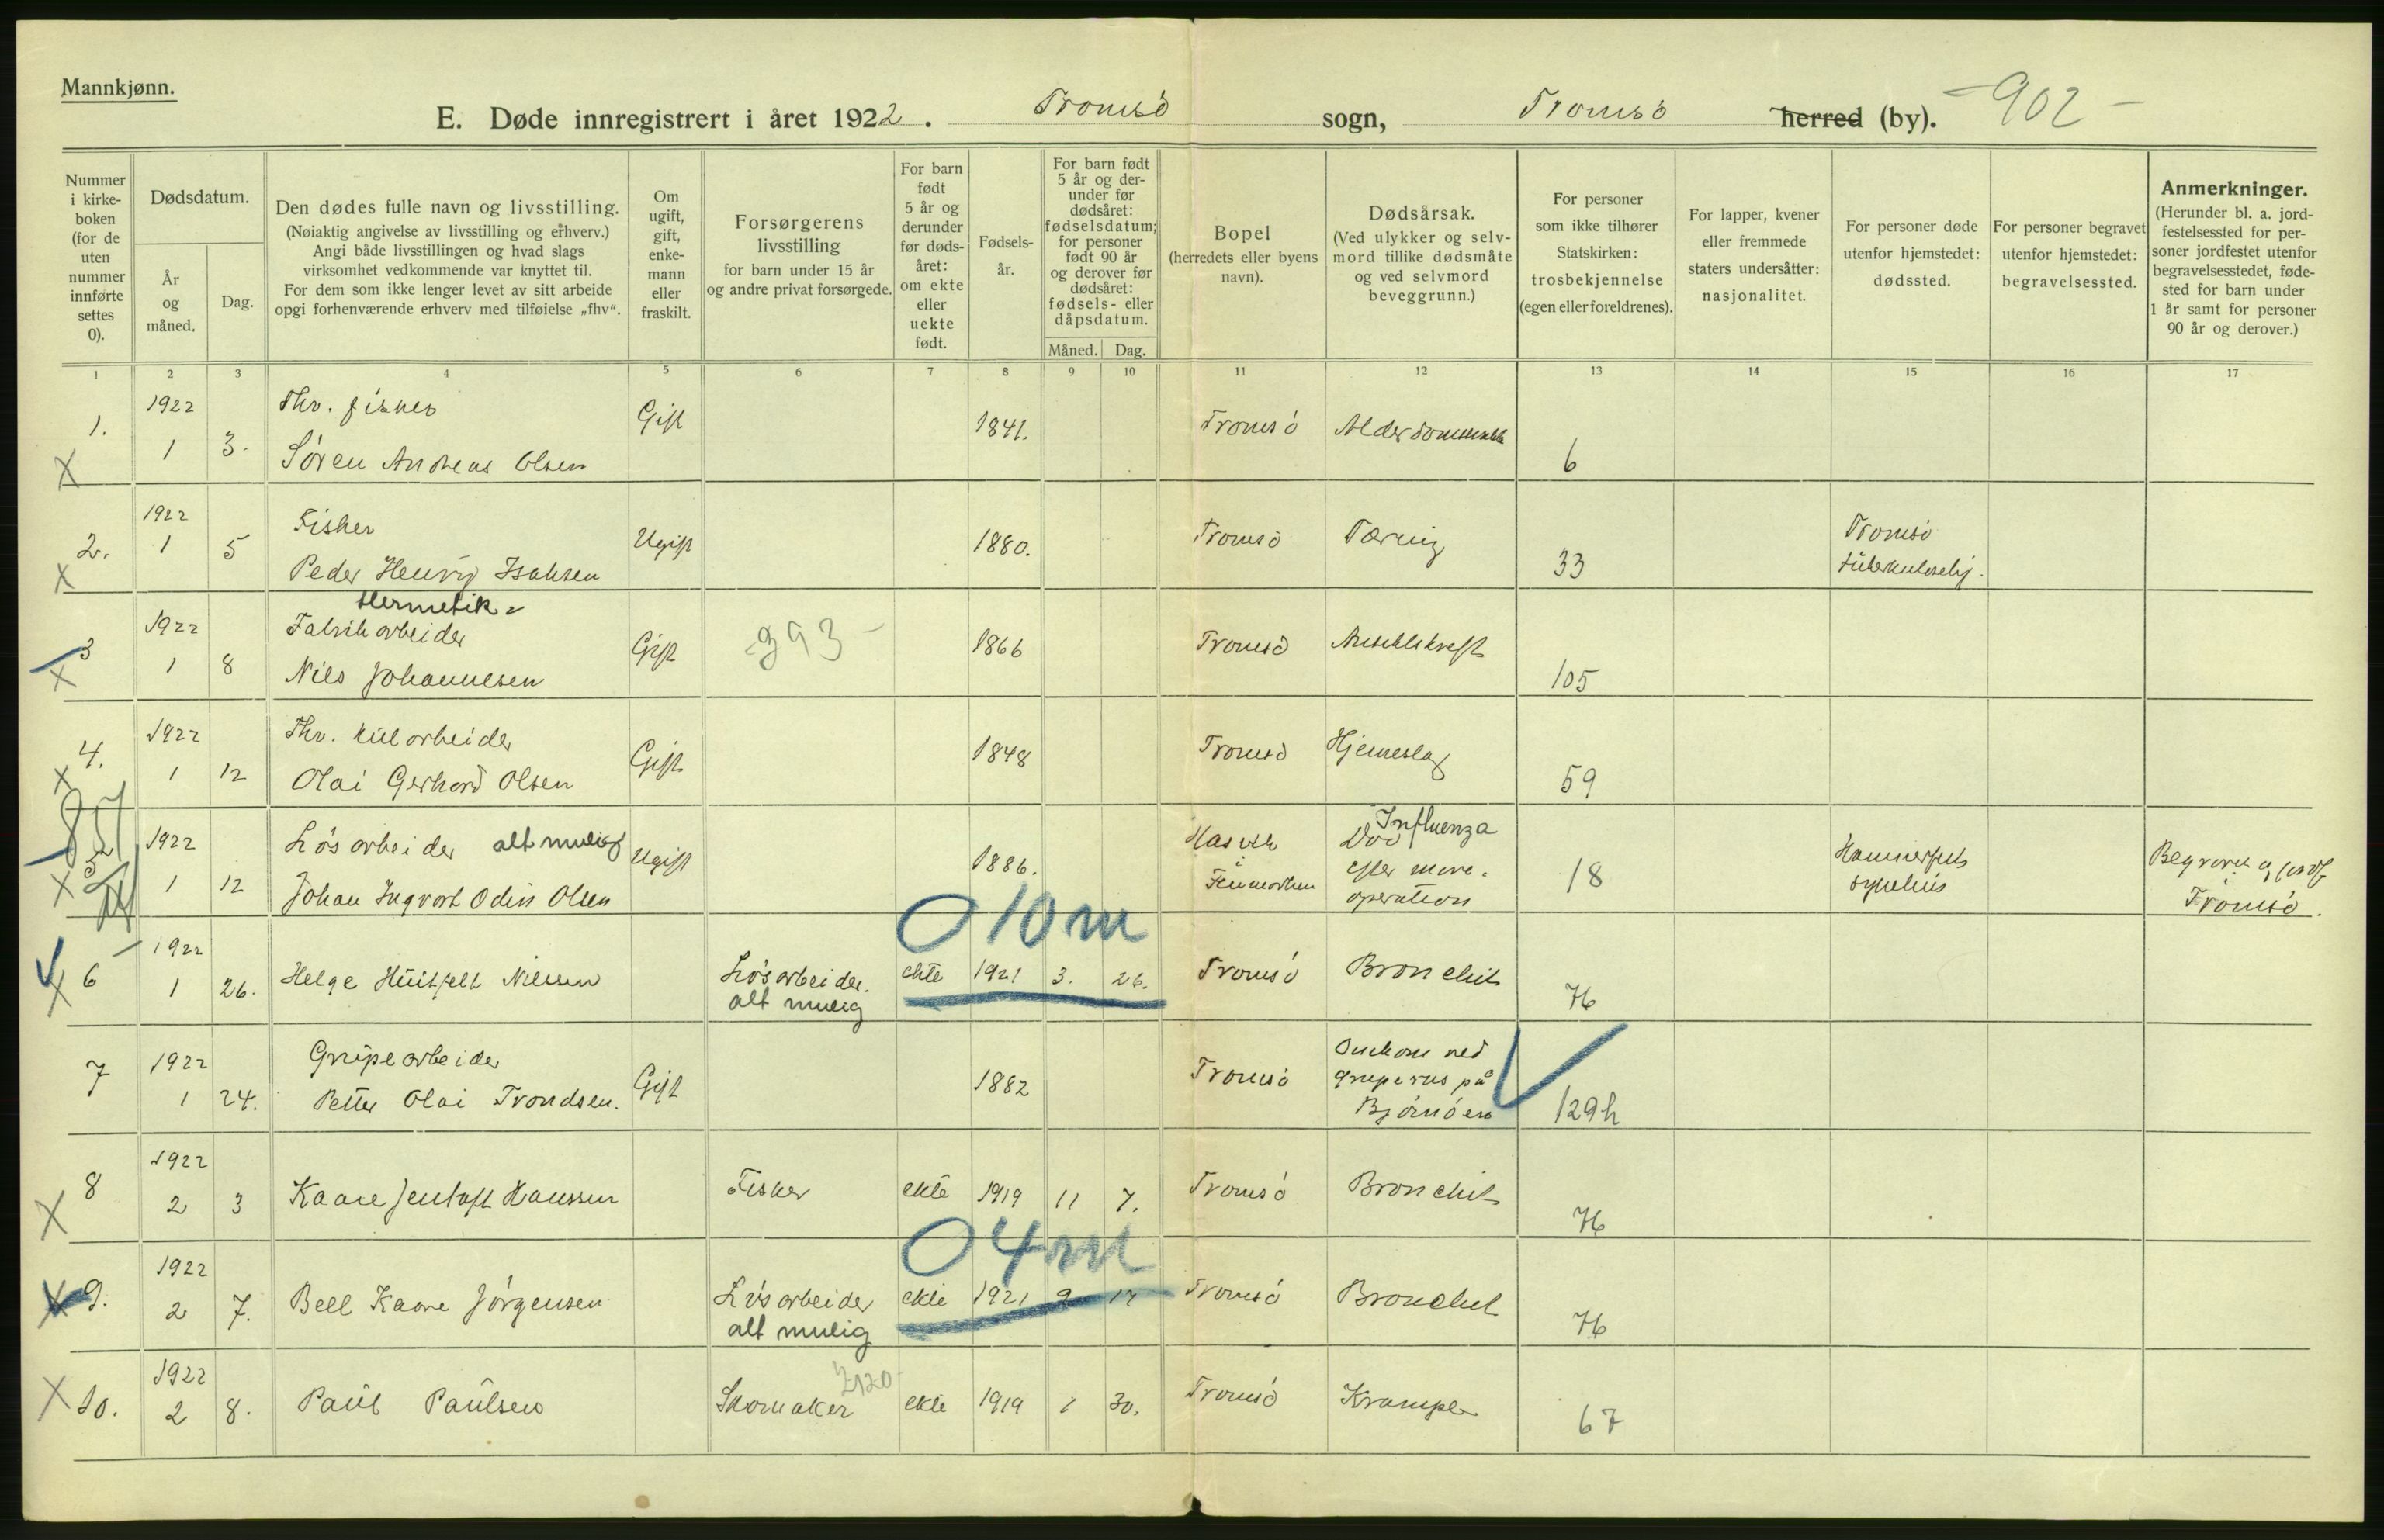 Mannkjønn.
E. Døde innregistrert i året 1922. Tromsö sogn, Tromsö herred (by). -902-
Nummer i kirke- boken (for de uten nummer innførte settes 0).
Dødsdatum.
År og måned.
Dag.
Den dødes fulle navn og livsstilling.
(Nøiaktig angivelse av livsstilling og erhverv.)
Angi både livsstillingen og hvad slags
virksomhet vedkommende var knyttet til.
For dem som ikke lenger levet av sitt arbeide
opgi forhenværende erhverv med tilføielse „fhv“.
Om ugift, gift, enke- mann eller fraskilt.
Forsørgerens
livsstilling
for barn under 15 år
og andre privat forsørgede.
For barn født 5 år og derunder før døds- året: om ekte eller uekte født.
Fødsels- år.
For barn født 5 år og der- under før dødsåret: fødselsdatum; for personer født 90 år og derover før dødsåret: fødsels- eller dåpsdatum.
Måned. Dag.
Bopel
(herredets eller byens
navn).
Dødsårsak.
(Ved ulykker og selv-
mord tillike dødsmåte
og ved selvmord
beveggrunn.)
For personer
som ikke tilhører
Statskirken:
trosbekjennelse
(egen eller foreldrenes).
For lapper, kvener
eller fremmede
staters undersåtter:
nasjonalitet.
For personer døde
utenfor hjemstedet:
dødssted.
For personer begravet
utenfor hjemstedet:
begravelsessted.
Anmerkninger.
(Herunder bl. a. jord-
festelsessted for per-
soner jordfestet utenfor
begravelsesstedet, føde-
sted for barn under
1 år samt for personer
90 år og derover.)
1 2 3 4 5 6 7 8 9 10 11 12 13 14 15 16 17
1922 Fhv. fisker
1. Gift 1841. Tromsö
1 3. Sören Andreas Olsen 6
X
1922 Fisker Tromsö
2. 1 5 Ugift 1880. Tromsö Tæring
Peder Henrij Isaksen 33
X
Hermetik-
1922 Fabrikarbeider
3 Gift 393- 1866 Tromsö
1 8 Nils Johannesen 105
X
1922 Fhv. kularbeider
4. Gift 1848 Tromsö
1 12 Olai Gerhard Olsen 59
X
1922 Lösarbeider altmulig Influenza
5 Ugift 1886. Hasvik i Finmarken Död efter mave-operation Hammerfest sykehus
1 12 Johan Ingvart Odin Olsen 18 Tromsö.
X
010m
1922
6 1 26. Helge Huitfelt Nilsen Lösarbeider. ekte 1921 3. 26. Tromsö Bronchit
alt mulig 76
X
1922 Grupearbeider Omkom ved
7 Gift 1882 Tromsö gruperas på
1 24. Petter Olai Trondsen. Björnöen 129h
1922
8 2 3 Kaare Jentoft Hanssen Fisker ekte 1919 11 7. Tromsö Bronchit
X 76
04m
1922
9. 2 7. Bell Kaare Jörgensen Lösarbeider ekte 1921 9 17 Tromsö Bronchit
alt mulig 76
X
1922 2120
10. 2 8. Paul Paulsen Skomaker ekte 1919 1 30. Tromsö Krampe
X 67